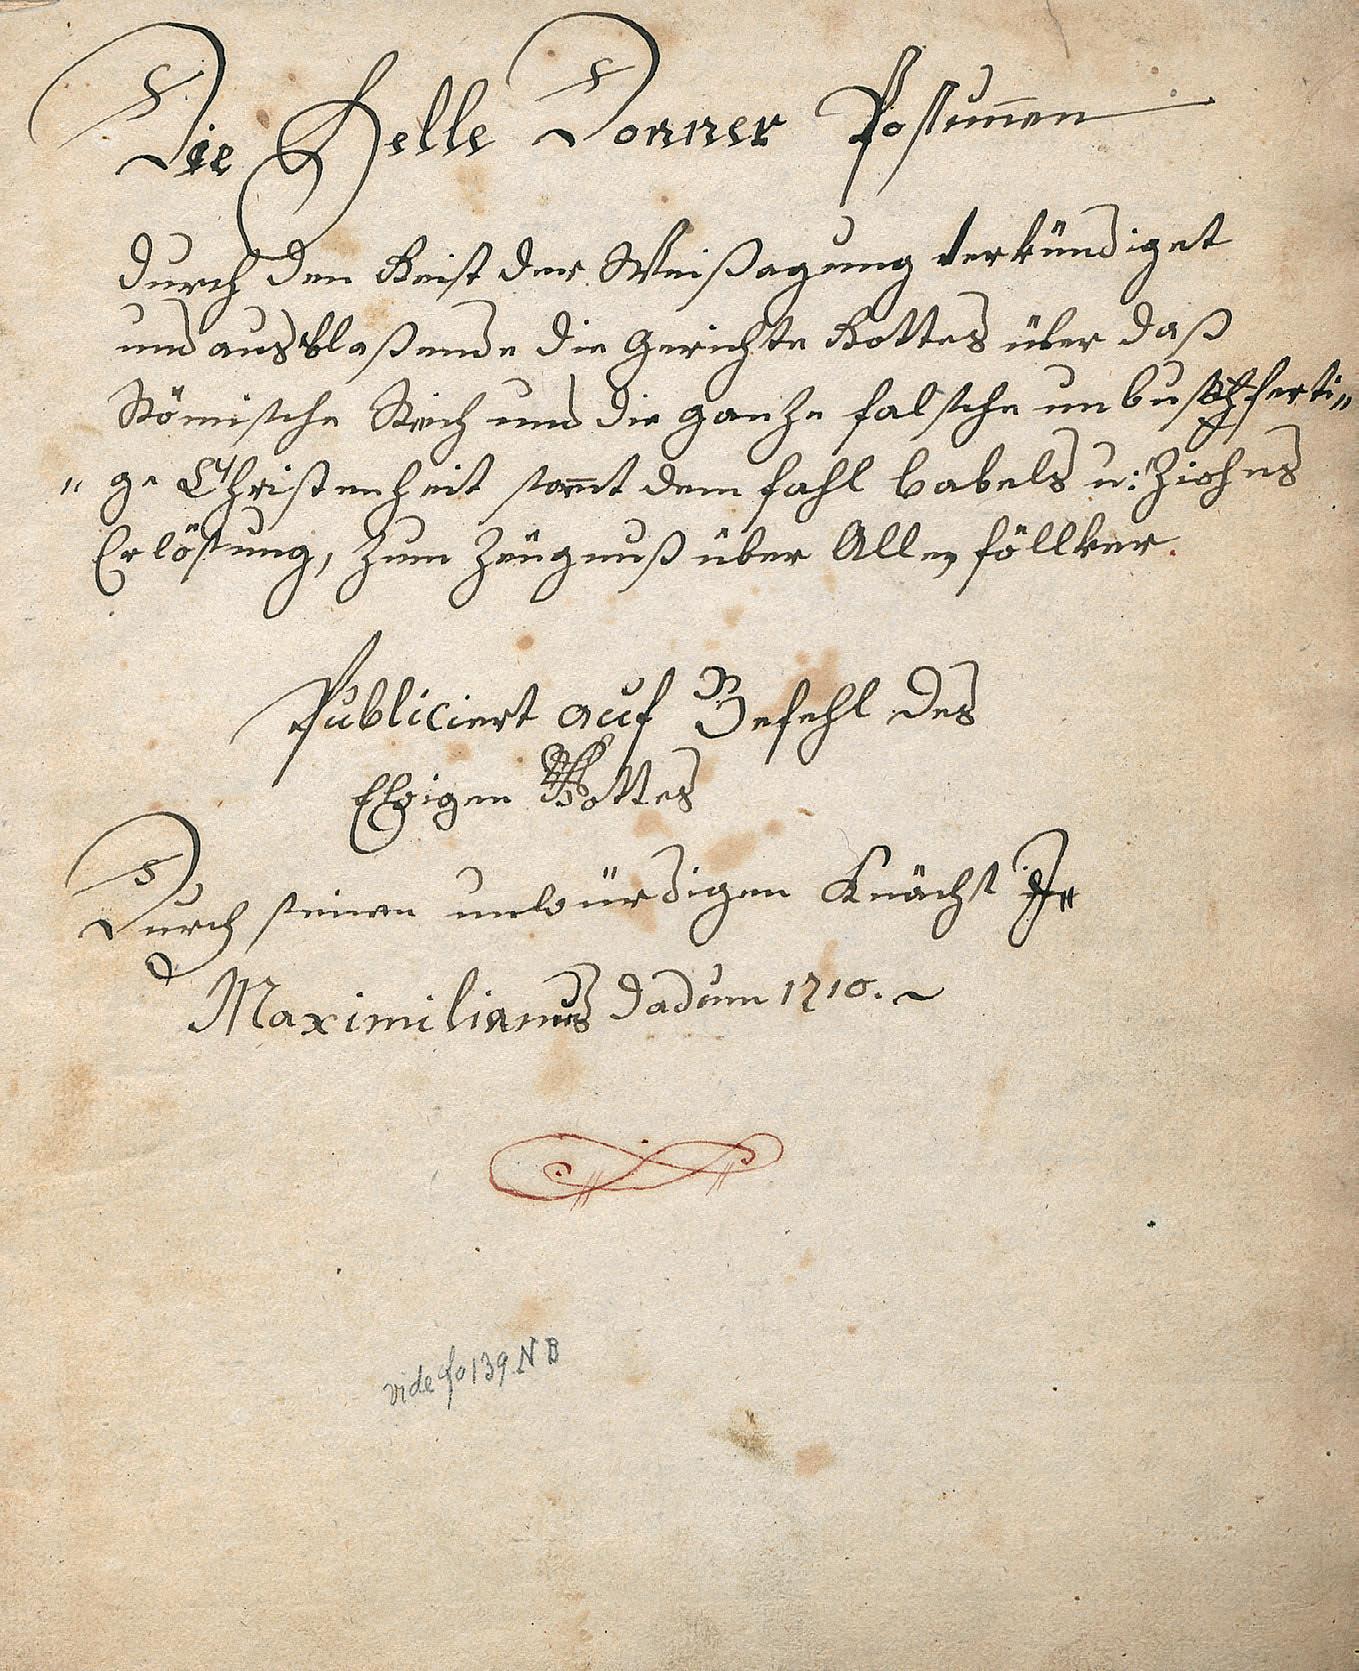 Die Helle Donner Possunnen
durch den Geist der Weißagung verkündiget
und ausblaßende die Gerichte Gottes über daß
Römische Reich und die ganze falsche unbusfferti„
„ge Christenheit samt dem fahl babels u: Ziohns
Erlösung, Zum Zeügnuß über Alle föllker.
Publiciert auf Befehl des
Ewigen Gottes
Durch seinen unwürdigen Knächt
Maximilianus dadum 1710.
vide fo 139 NB